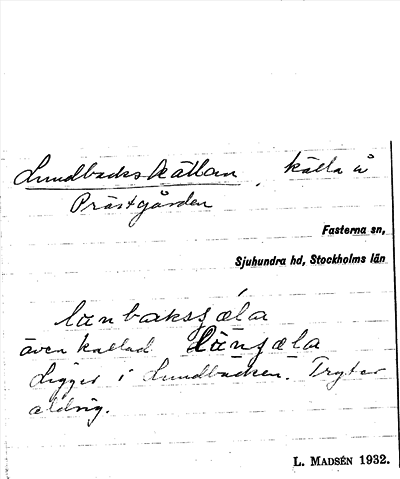 Lundbackskällan, källa å
Prästgården
Fasterna sn,
Sjuhundra hd, Stockholms län
lu̇nbaksɟæla
även kallad lu̇nɟæla
Ligger i Lundbacken. Tryter
aldrig.
L. MADSÉN 1932.